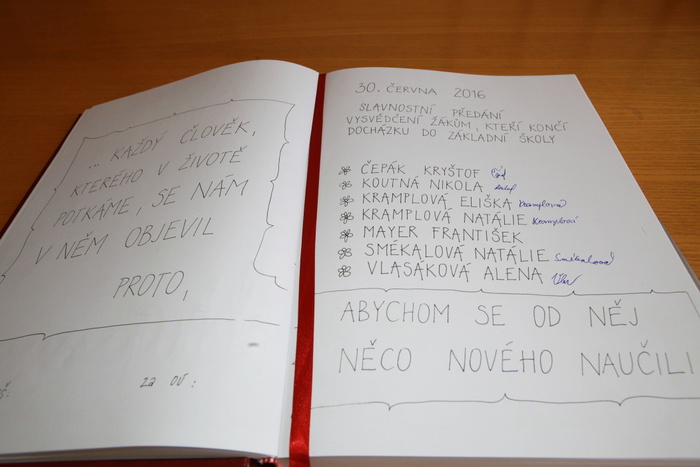 ... KAŽDÝ ČLOVĚK,
KTERÉHO V ŽIVOTĚ
POTKÁME, SE NÁM
V NĚM OBJEVIL
PROTO,
za OÚ:
30. ČERVNA 2016
SLAVNOSTNÍ PŘEDÁNÍ
VYSVĚDČENÍ ŽÁKŮM, KTEŘÍ KONČÍ
DOCHÁZKU DO ZÁKLADNÍ ŠKOLY
ČEPÁK KRYŠTOF
KOUTNÁ NIKOLA
KRAMPLOVÁ ELIŠKA Kramplová
KRAMPLOVÁ NATÁLIE Kramplová
MAYER FRANTIŠEK
SMÉKALOVÁ NATÁLIE Smékalová
VLASÁKOVÁ ALENA
ABYCHOM SE OD NĚJ
NĚCO NOVÉHO NAUČILI